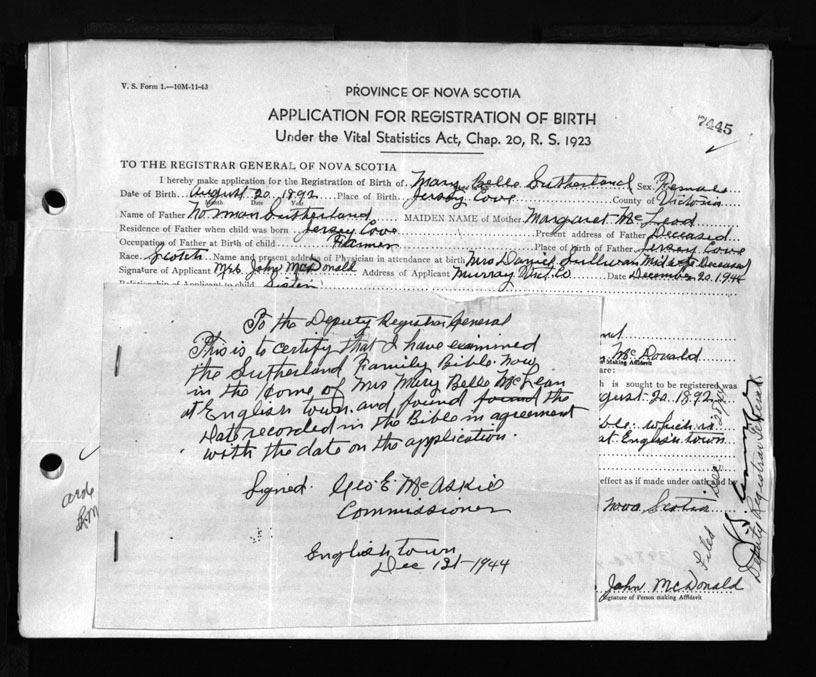 V. S. Form 1.—10M-11-43
PROVINCE OF NOVA SCOTIA
APPLICATION FOR REGISTRATION OF BIRTH
7445
Under the Vital Statistics Act, Chap. 20, R. S. 1923
TO THE REGISTRAR GENERAL OF NOVA SCOTIA
I hereby make application for the Registration of Birth of Mary Belle Sutherland Sex Female
Date of Birth August 20 1892 Place of Birth Jersey Cove County of Victoria
Month Date Year
Name of Father Norman Sutherland MAIDEN NAME of Mother Margaret McLeod
Residence of Father when child was born Jersey Cove Present address of Father Deceased
Occupation of Father at Birth of child Farmer Place of Birth of Father Jersey Cove
Race Scotch Name and present address of Physician in attendance at birth Mrs Daniel Sullivan Midwife Deceased
Signature of Applicant Mrs. John McDonald Address of Applicant Murray Vict Co Date December 20 1944
Relationship of Applicant to child Sister
To the Deputy Registrar General
This is to certify that I have examined
the Sutherland Family Bible now
in the home of Mrs Mary Belle McLean
at English town and found found the
Date recorded in the Bible in agreement
with the date on the application.
Signed. Geo E McAskil
Commissioner
English town
Dec 121-1944
McDonald
Making Affidavit
are:
h is sought to be registered was
ugust 20 1892
ble which is
at English town
effect as if made under oath and by
Nova Scotia
John McDonald
Signature of Person making Affidavit
Filed Dec
Deputy Registrar General